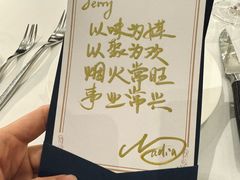 Jerry
以味为媒
以聚为欢
烟火常旺
事业常兴
Nadia